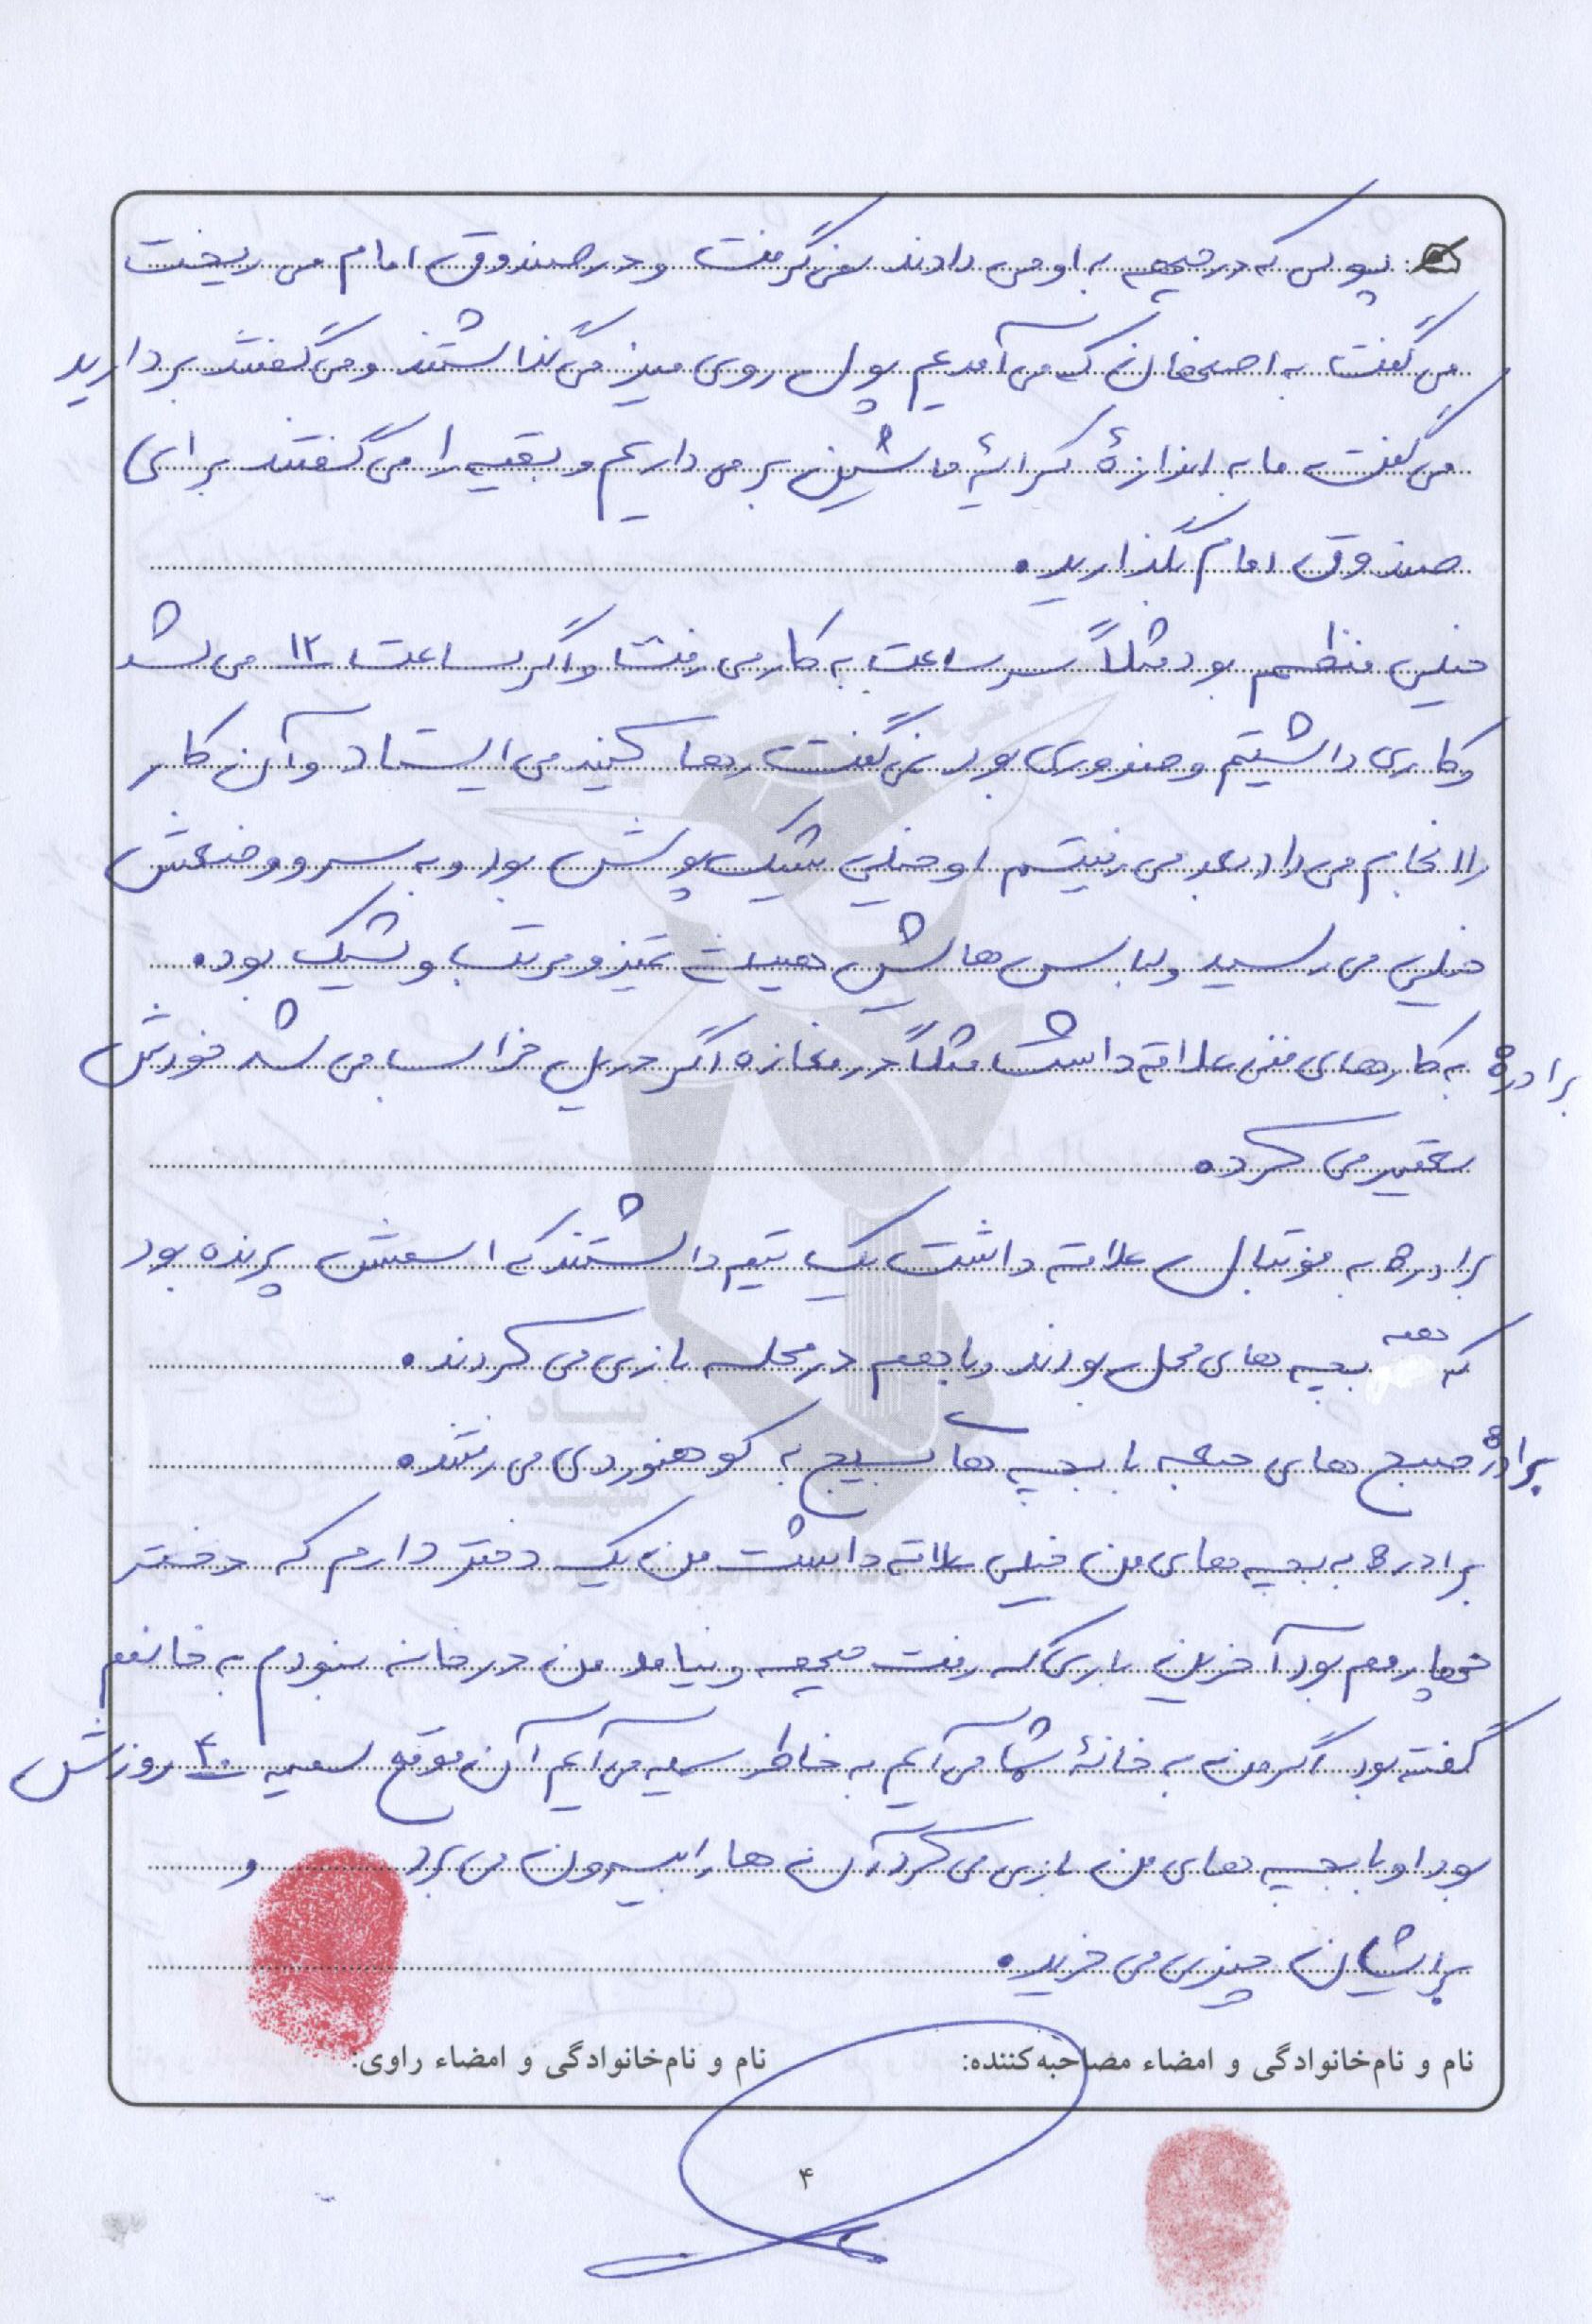 پولی که در جبهه به او می دادند نمی گرفت و در صندوق امام می ریخت
می گفت به اصفهان که می آمدیم پول روی میز می گذاشتند و می گفتند بردارید
می گفت ما به اندازهٔ کرایهٔ ماشین بر می داریم و بقیه را می گفتند برای
صندوق امام بگذارید.
خیلی منظم بود مثلاً سر ساعت به کار می رفت و اگر ساعت ۱۲ می شد
و کاری داشتیم و ضروری بود نمی گفت رها کنید می ایستاد و آن کار
را انجام می داد بعد می رفتیم او خیلی شیک پوش بود و به سر و وضعش
خیلی می رسید و لباس هایش همیشه تمیز و مرتب و شیک بود.
برادرم به کارهای فنی علاقه داشت مثلاً در مغازه اگر دریل خراب می شد خودش
تعمیر می کرد.
برادرم به فوتبال علاقه داشت یک تیم داشتند که اسمش پرنده بود
که همه بچه های محل بودند و با هم در محله بازی می کردند.
برادرم صبح های جمعه با بچه های بسیج به کوهنوردی می رفتند.
برادرم به بچه های من خیلی علاقه داشت من یک دختر دارم که دختر
چهارمم بود آخرین باری که رفت جبهه و نیامد من در خانه نبودم به خانمم
گفته بود اگر من به خانهٔ شما می آیم به خاطر سمیه می آیم آن موقع سمیه ۴۰ روزش
بود او با بچه های من بازی می کرد آن ها را بیرون می برد و
برایشان چیزی می خرید.
نام و نام‌خانوادگی و امضاء مصاحبه‌کننده: نام و نام‌خانوادگی و امضاء راوی:
۴